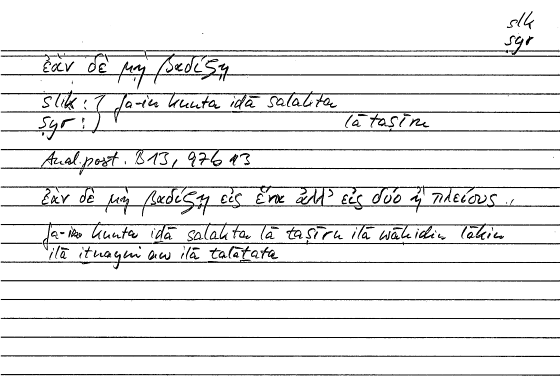 slk
ṣyr
ἐὰν δὲ μὴ βαδίζῃ
slk : } fa-in kunta iḏā salakta
ṣyr : } lā taṣīru
Anal. post. B 13, 97b 13
ἐὰν δὲ μὴ βαδίζῃ εἰς ἕνα ἀλλ' εἰς δύο ἢ πλείους ..
fa-in kunta iḏā salakta lā taṣīru ilā wāḥidin lākin
ilā iṯnayni aw ilā ṯalāṯata